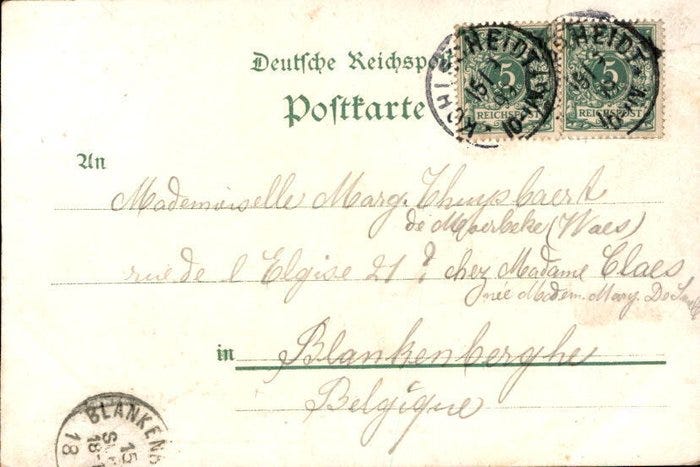 Deutsche Reichspost
Postkarte
5
REICHSPOST
5
REICHSPOST
KOHLSCHEIDT
15/7
10-11V
HEIDT
15/7
An
Mademoiselle Marg. Thuysbaert
de Moerbeke (Waes)
rue de l'Elgise 21 ? chez Madame Claes
née Madem. Mary. De
in Blankenberghe
Belgique
BLANKENB
15
18-
18